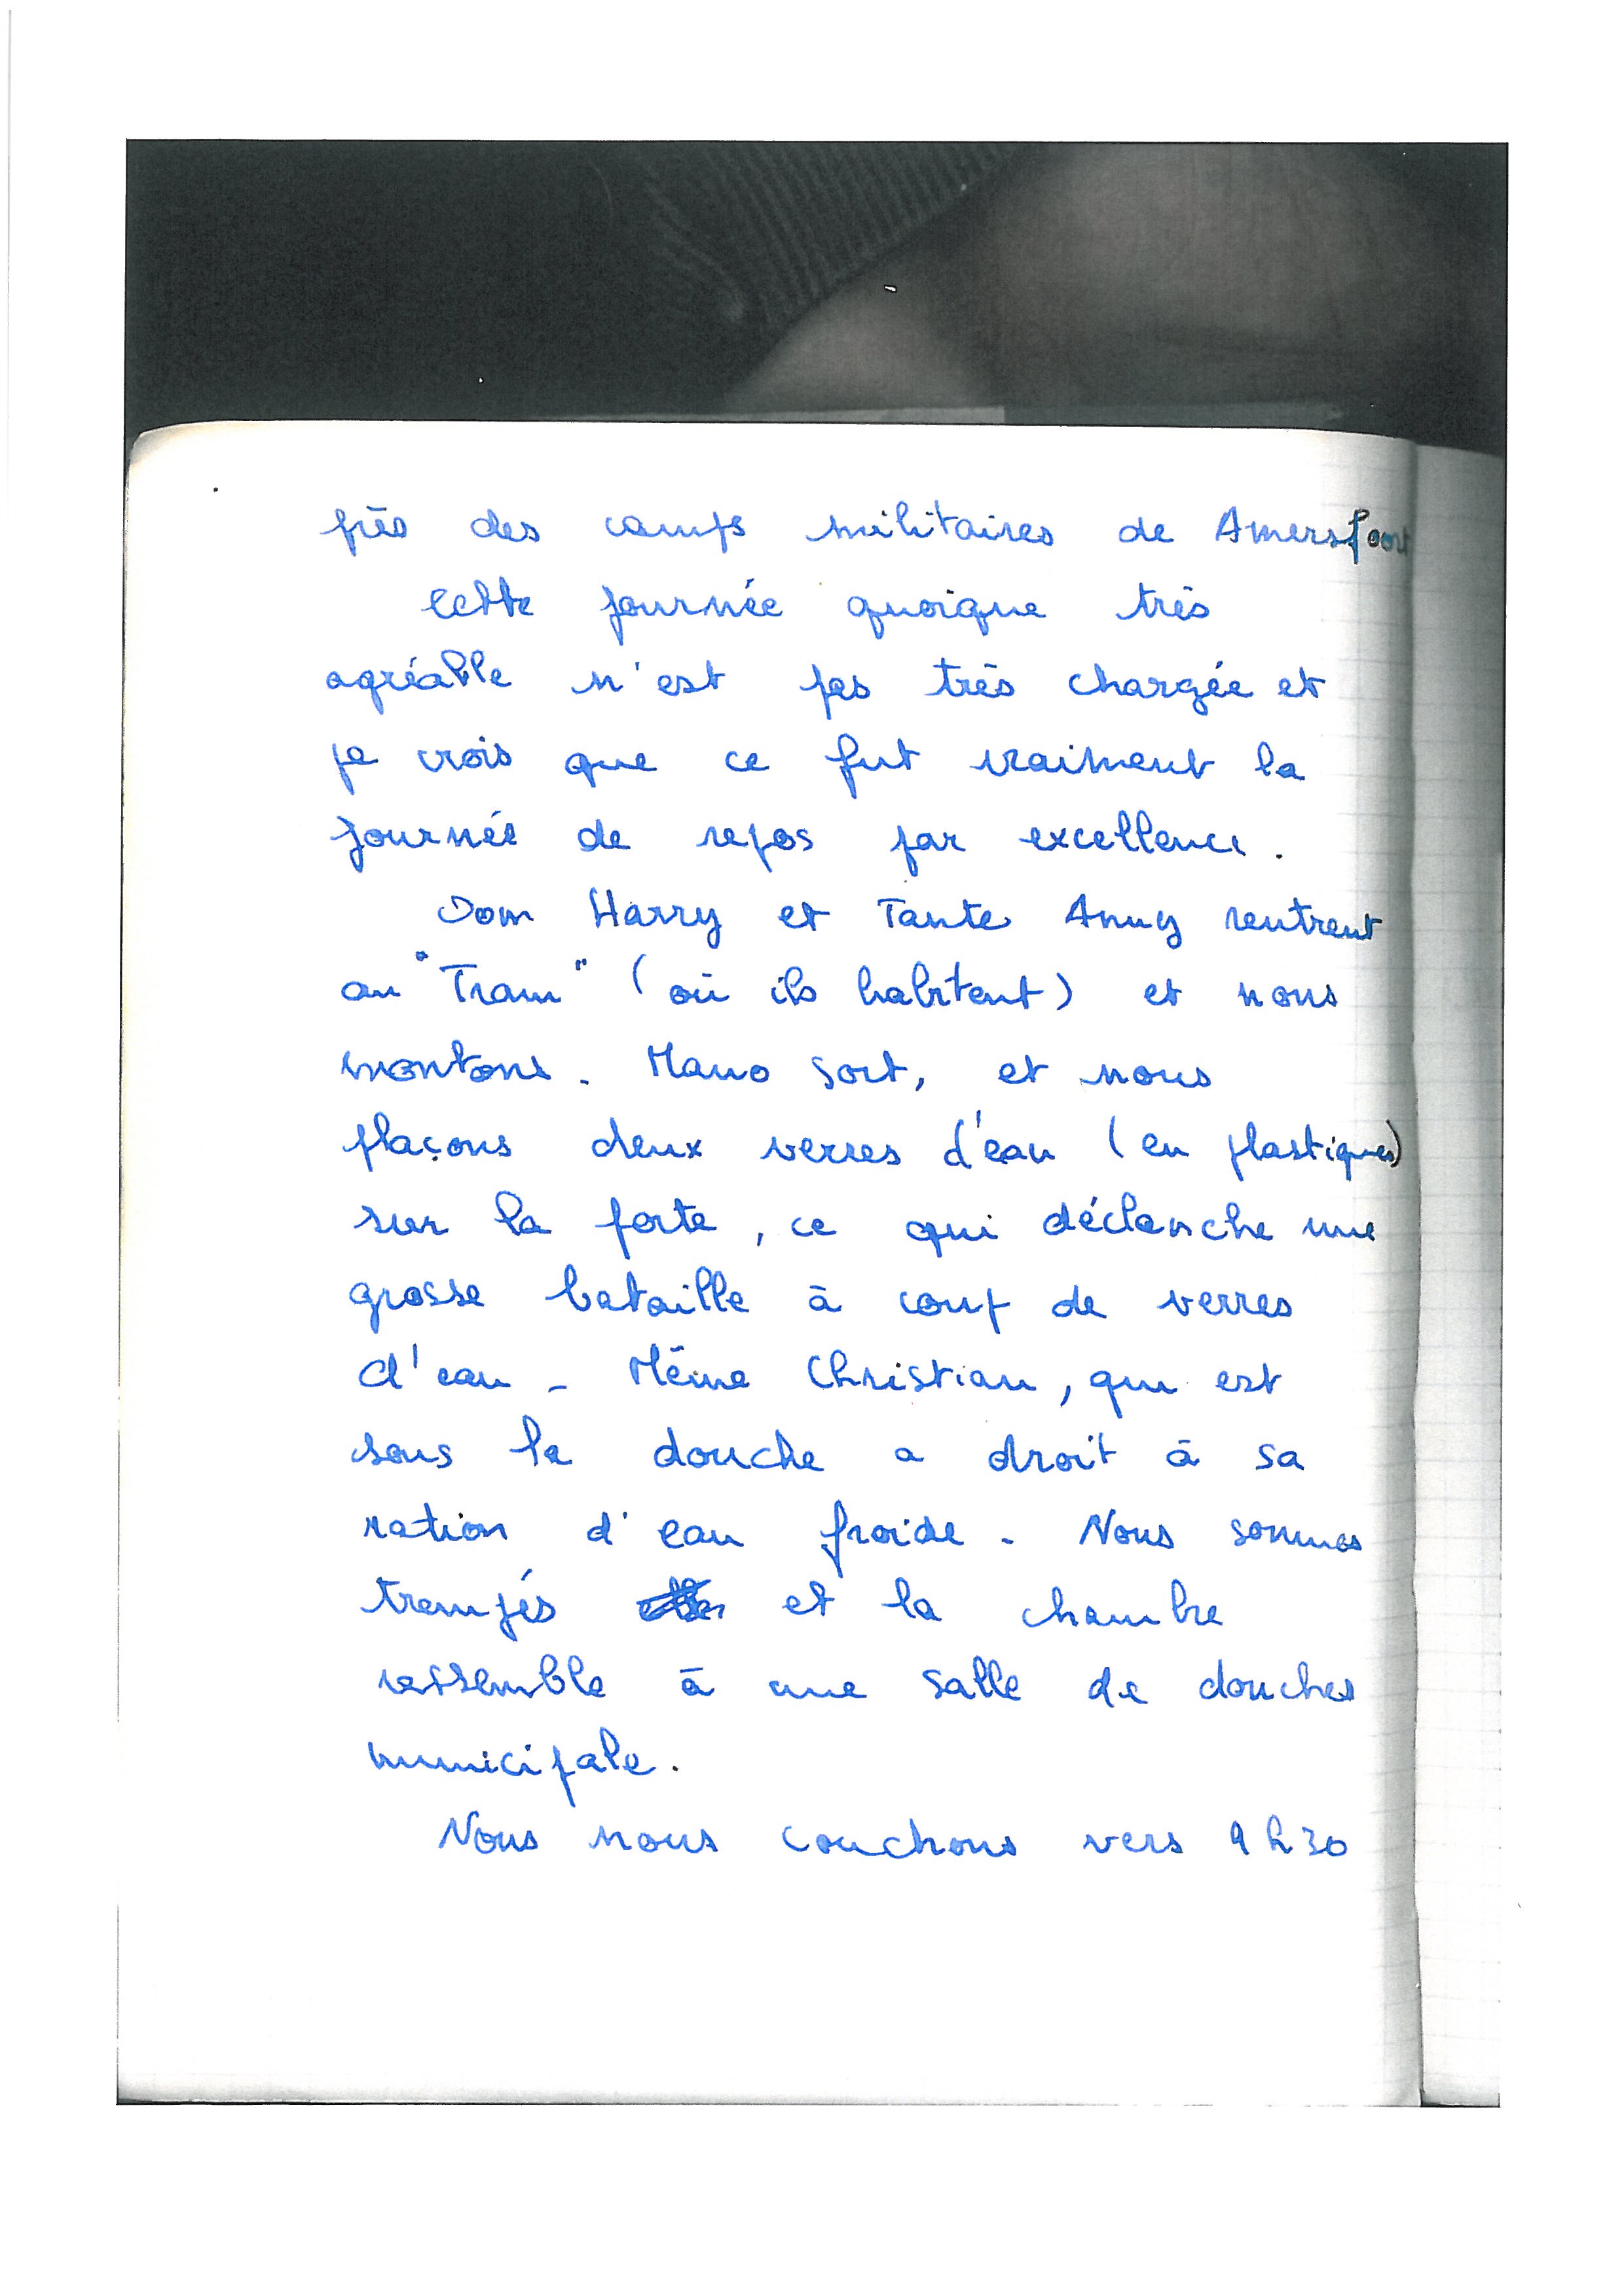 près des camps militaires de Amersfoort
Cette journée quoique très
agréable n'est pas très chargée et
je crois que ce fut vraiment la
journée de repos par excellence.
Oom Harry et Tante Anny rentrent
au "Tram" (où ils habitent) et nous
montons. Mano sort, et nous
plaçons deux verres d'eau (en plastiques)
sur la porte, ce qui déclanche une
grosse bataille à coup de verres
d'eau - Même Christian, qui est
sous la douche a droit à sa
ration d'eau froide - Nous sommes
trempés et la chambre
ressemble à une salle de douches
municipale.
Nous nous couchons vers 9h30